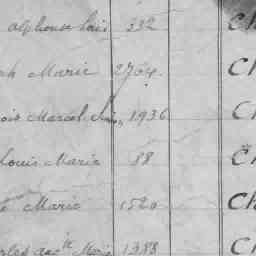 alphonse Luis 332 Ch
ph Marie 2764 Ch
ois Marcel 1936 Ch
Louis Marie 88 Ch
Marie 1520 Ch
Marie 1388 Ch